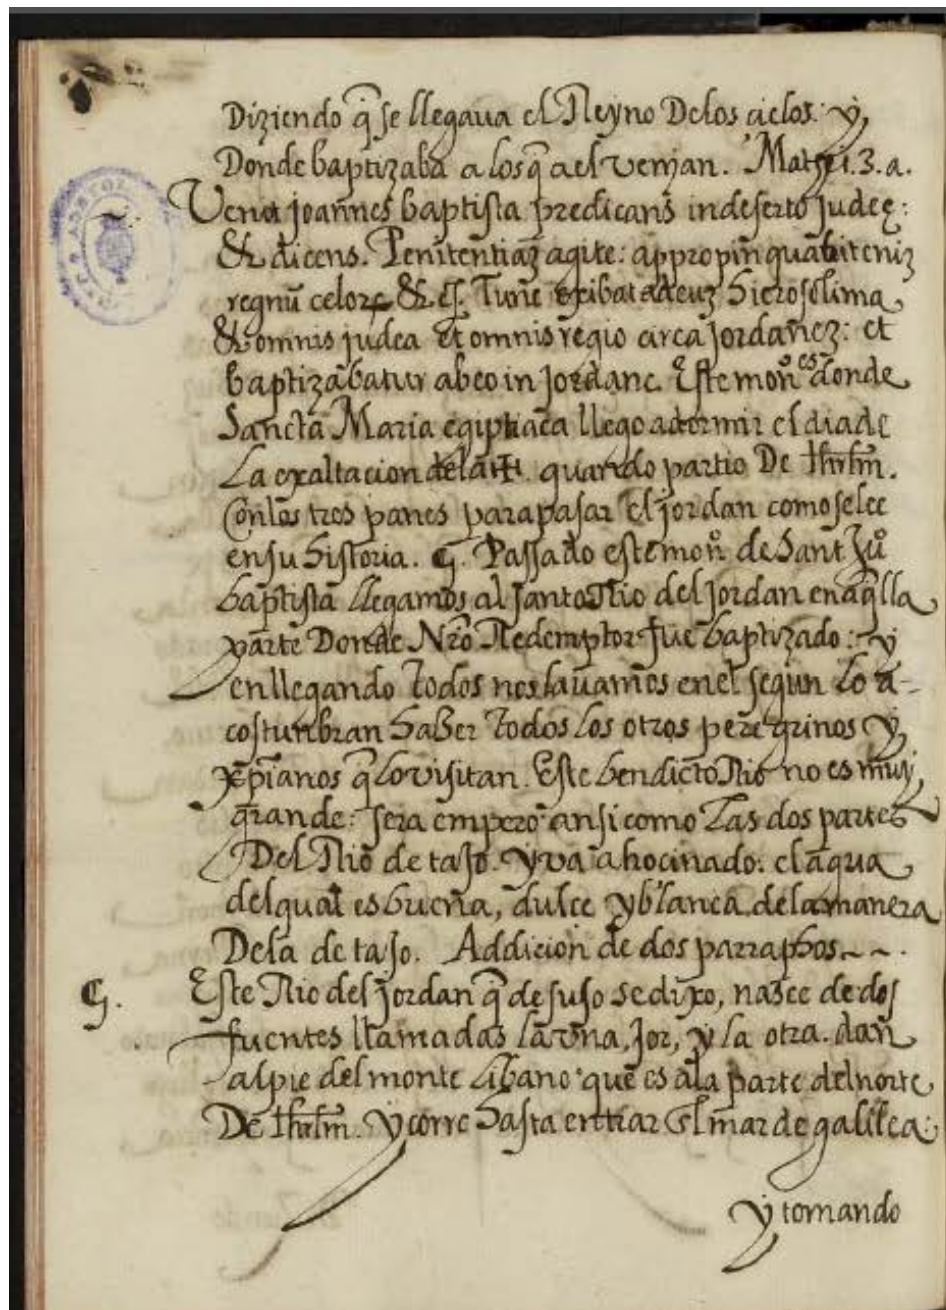 Diziendo q̃ se llegaua el Reyno Delos cielos: y
Donde baptizaba a los q̃ a el Venjan. Mathei. 3. a.
Venit joannes baptista predicans in deserto judeę:
& dicens. Penitentiaȝ agite: appropinquabit eniȝ
regnũ celorꝝ & cͅ. Tunc exibat ad euȝ hierosolima
& omnis judea et omnis regio circa Jordaneȝ: et
baptizabatur ab eo in Jordane. Este mon.º es donde
Sancta Maria egiptiaca llego a dormir el dia de
La exaltacion dela ✠. quando partio De Ihrlm.
Con los tres panes para pasar El jordan como se lee
en su historia. ¶. Passado este mon.º de Sant Juº
baptista llegamos al santo Rio del Jordan en aq̃lla
parte Donde Nr̃o Redemptor fue baptizado: y
en llegando todos nos lauamos en el segun lo a-
costunbran haber todos los otros peregrinos y
xp̃ianos q̃ lo visitan. Este bendicto Rio no es muy
grande: sera empero ansi como Las dos partes
Del Rio de tajo. y va ahocinado. el agua
del qual es buena, dulce y blanca dela manera
Dela de tajo. Addicion de dos parraphos ~ ~.
¶. Este Rio del Jordan q̃ de suso se dixo, nasce de dos
fuentes llamadas la vna, Jor, y la otra. dan
al pie del monte Libano que es ala parte del norte
De Ihrlm. y corre hasta entrar El mar de galilea:
y tornando